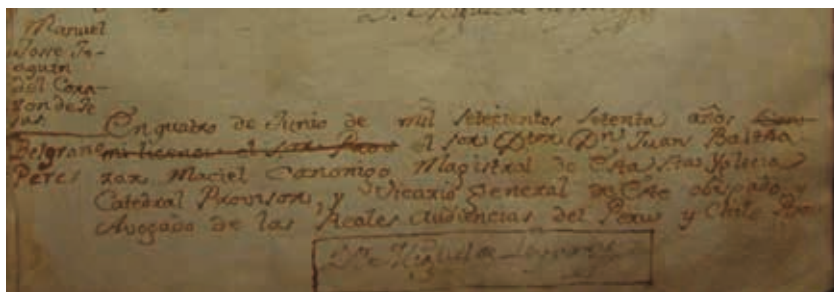 Manuel
Josse Jo-
aquin
del Cora-
zon de Je
sus.
Belgrano
Peres
En quatro de Junio de mil setecientos setenta años Con
mi licencia el Sor Prov el Sor Dtor Dn Juan Baltha
zar Maciel Canonigo Magistral de esta Sta Yglecia
Catedral Provisor, y Vicario General de este obispado, y
Avogado de las Reales audiencias del Peru y Chile